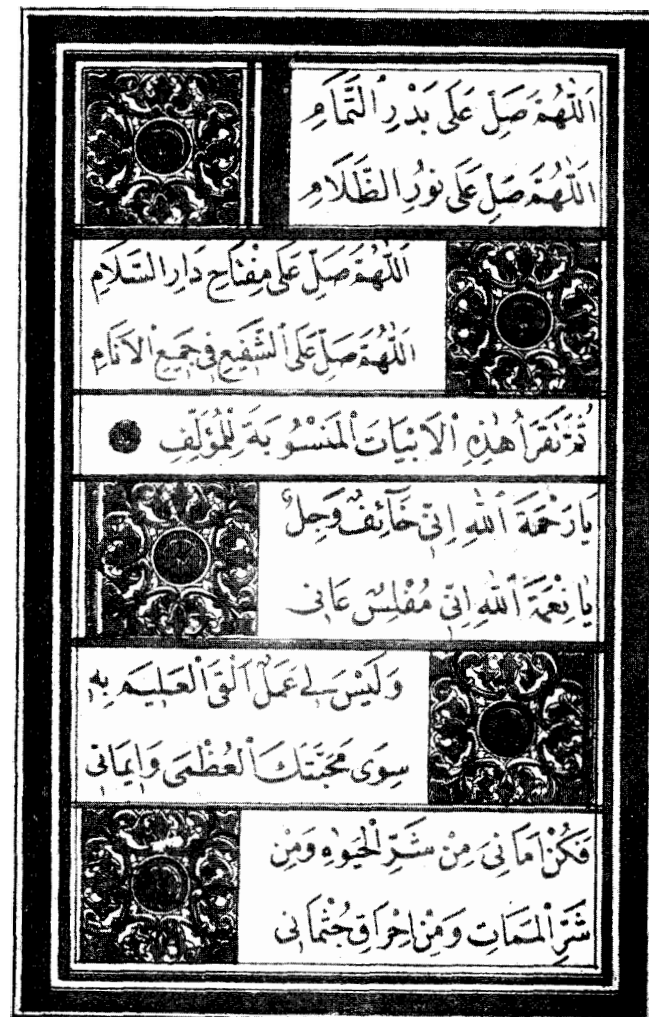 اَللّٰهُمَّ صَلِّ عَلَى بَدْرِ التَّمَامِ
اَللّٰهُمَّ صَلِّ عَلَى نُورِ الظَّلَامِ
اَللّٰهُمَّ صَلِّ عَلَى مِفْتَاحِ دَارِ السَّلَامِ
اَللّٰهُمَّ صَلِّ عَلَى الشَّفِيعِ فِي جَمِيعِ الْاَنَامِ
ثُمَّ يَقْرَأُ هٰذِهِ الْاَبْيَاتَ الْمَنْسُوبَةَ لِلْمُؤَلِّفِ
يَا رَحْمَةَ اللّٰهِ اِنِّي خَآئِفٌ وَجِلٌ
يَا نِعْمَةَ اللّٰهِ اِنِّي مُفْلِسٌ عَانِي
وَلَيْسَ لِي عَمَلٌ اَلْقَى الْعَلِيمَ بِهِ
سِوَى مَحَبَّتِكَ الْعُظْمَى وَاِيمَانِي
فَكُنْ اَمَانِيَ مِنْ شَرِّ الْحَيٰوةِ وَمِنْ
شَرِّ الْمَمَاتِ وَمِنْ اِحْرَاقِ جُثْمَانِي